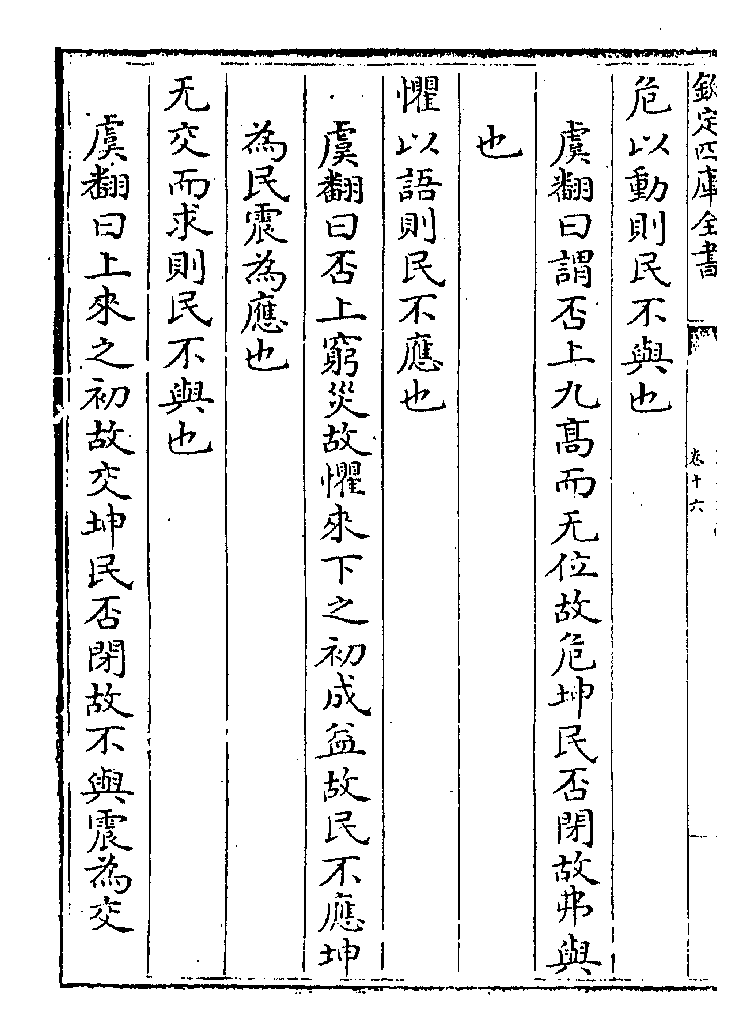 欽定四庫全書
卷十六
危以動則民不與也
虞翻曰謂否上九髙而无位故危坤民否閉故弗與
也
懼以語則民不應也
虞翻曰否上窮災故懼來下之初成益故民不應坤
為民震為應也
无交而求則民不與也
虞翻曰上來之初故交坤民否閉故不與震為交